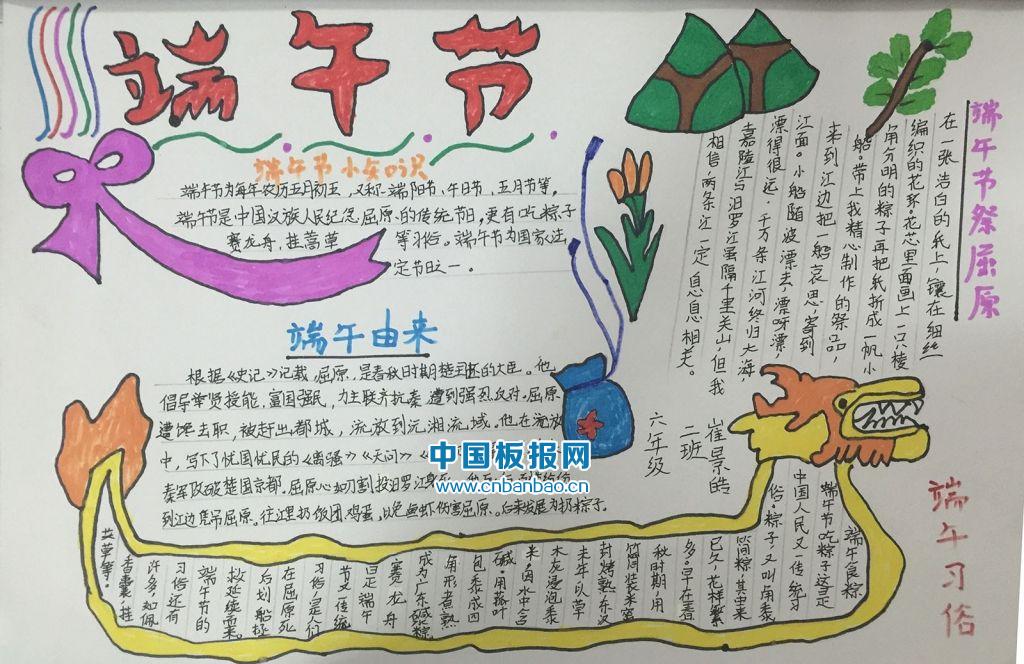 端午节
端午节小知识
端午节为每年农历五月初五，又称端阳节、午日节、五月节等。
端午节是中国汉族人民纪念屈原的传统节日，更有吃粽子
赛龙舟，挂蒿草
等习俗。端午节为国家法
定节日之一。
端午由来
根据《史记》记载，屈原，是春秋时期楚
的大臣。他
倡导举贤授能，富国强民，力主联齐抗秦，遭到强烈反对。屈原
遭馋去职，被赶出都城，流放到沅湘流域。他在流放
中，写下了忧国忧民的《离骚》《天问》
秦军攻破楚国京都，屈原心如刀割
投汨罗江
到江边凭吊屈原。往江里扔饭团、鸡蛋，以免鱼虾伤害屈原。后来发展为扔粽子。
端午节祭屈原
在一张洁白的纸上，镶在细丝
编织的花环，花芯里面画上一只棱
角分明的粽子再把纸折成一帆小
船。带上我精心制作的祭品，
来到江边把一船哀思，寄到
江面。小船随波漂去，漂呀漂，
漂得很远，千万条江河终归大海，
嘉陵江与汨罗江虽隔千里关山，但我
相信，两条江一定息息相关。
崔景皓
二班
六年级
端午习俗
端午食粽
端午节吃粽子这是
中国人民又一传统习
俗。粽子，又叫角黍
筒粽，其由来
已久，花样繁
多。早在春
秋时期，用
筒筒装米密
封烤熟，东汉
末年以草
木灰浸泡黍
米，因水中含
碱，用菰叶
包黍成四
角形，煮熟
成为广东碱粽
赛龙舟
曰是端午
节又传统
习俗，是人们
在屈原死
后划船拯
救延续而来。
端午节的
习俗还有
许多，如佩
香囊，挂
艾草等。
中国板报网
www.cnbanbao.cn